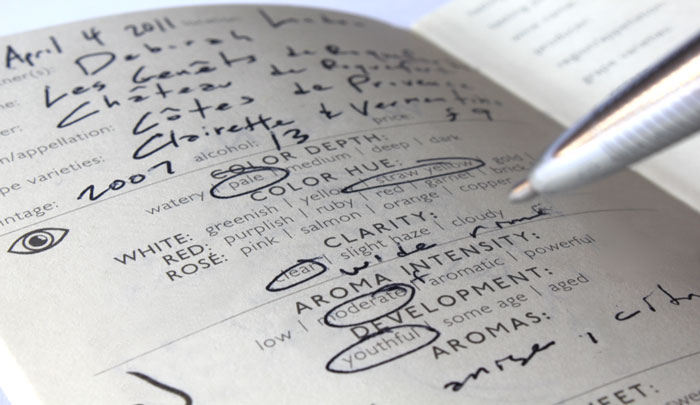 April 4 2011 London
ner(s): Deborah
Les Genêts de
er: Château de
n/appellation: Côtes de Provence
pe varieties: Clairette & Vermentino
intage: 2007 alcohol: 13 price: 9
COLOR DEPTH:
watery | pale | medium | deep | dark
COLOR HUE:
WHITE: greenish | yellow | straw yellow | gold
RED: purplish | ruby | red | garnet | brick
ROSÉ: pink | salmon | orange | copper
CLARITY:
clear | slight haze | cloudy
wide
AROMA INTENSITY:
low | moderate | aromatic | powerful
DEVELOPMENT:
youthful | some age | aged
AROMAS:
anise,
EET: